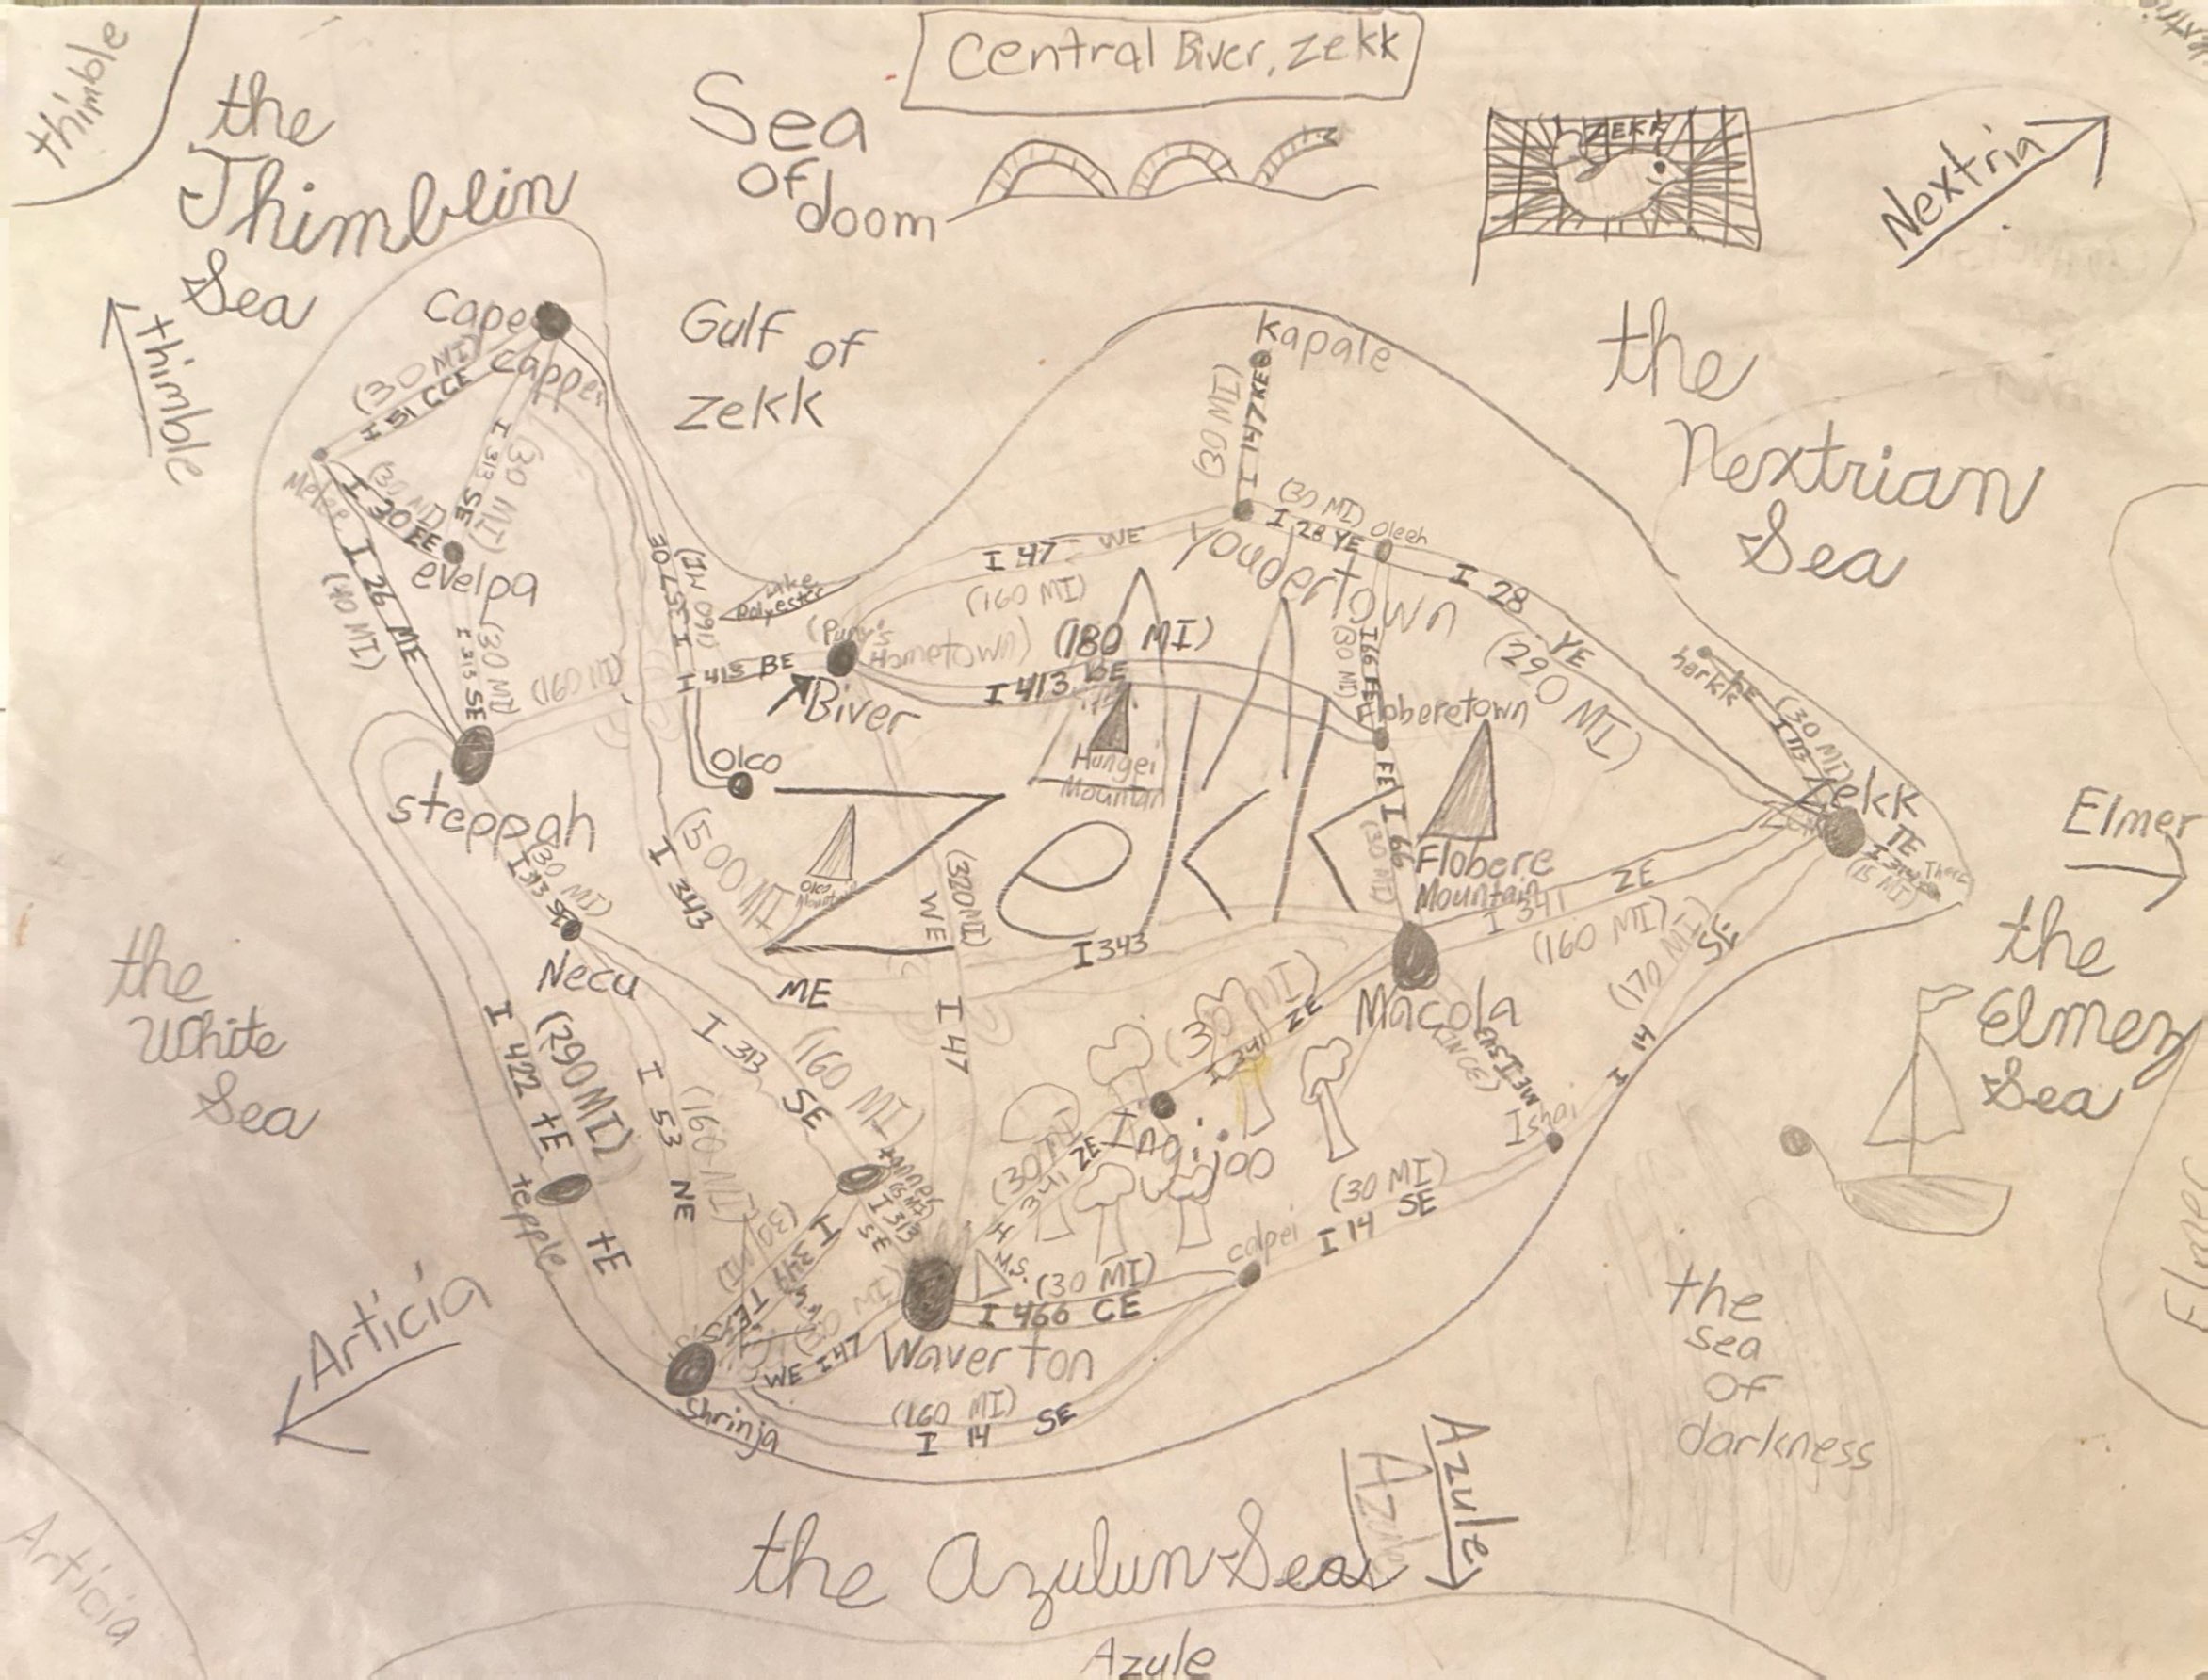 thimble
Central Biver, Zekk
Nextria
the
Thimblin
Sea
Sea
of
doom
ZEKK
Nextria
thimble
Cape
Capper
(30 MI)
H 51 CCE
Gulf of
Zekk
Kapale
the
Nextrian
Sea
I 147 KE
(30 MI)
I 313 SE
(30 MI)
Melee
(30 MI)
I 30 EE
evelpa
I 26 ME
(40 MI)
I 313 SE
(30 MI)
I 357 OE
(160 MI)
Lake
Polyester
I 47 WE
(160 MI)
(30 MI)
I 28 YE
Oleeh
Youdertown
I 28 YE
(290 MI)
(Puny's
Hometown)
(180 MI)
I 413 BE
I 413 BE
(160 MI)
Biver
I 166 FE
(30 MI)
Floberetown
harkk
HE
I 113
(30 MI)
Zekk
TE
(15 MI)
There
Elmer
Olco
steppah
Hungei
Mountain
FE I 66
(30 MI)
Flobere
Mountain
ZE
I 341
(160 MI)
Zekk
Olco
Mountain
(500 MI)
I 343
I 343
ME
(30 MI)
I 313 SE
Necu
WE
(320 MI)
I 47
the
White
Sea
Macola
(170 MI)
SE
I 14
the
Elmer
Sea
I 422 tE
(290 MI)
I 313 SE
(160 MI)
I 53 NE
(160 MI)
(30 MI)
H 341 ZE
Inojjoo
(30 MI)
H 341 ZE
Ishai
tepple
tE
tanner
I 313
SE
I 349 TE
(30 MI)
M.S.
(30 MI)
I 466 CE
colpei
(30 MI)
I 14 SE
Waverton
WE I 47
Shrinja
(160 MI)
I 14 SE
Articia
the
sea
of
darkness
Elmer
Azule
Azule
the Azulun Sea
Articia
Azule